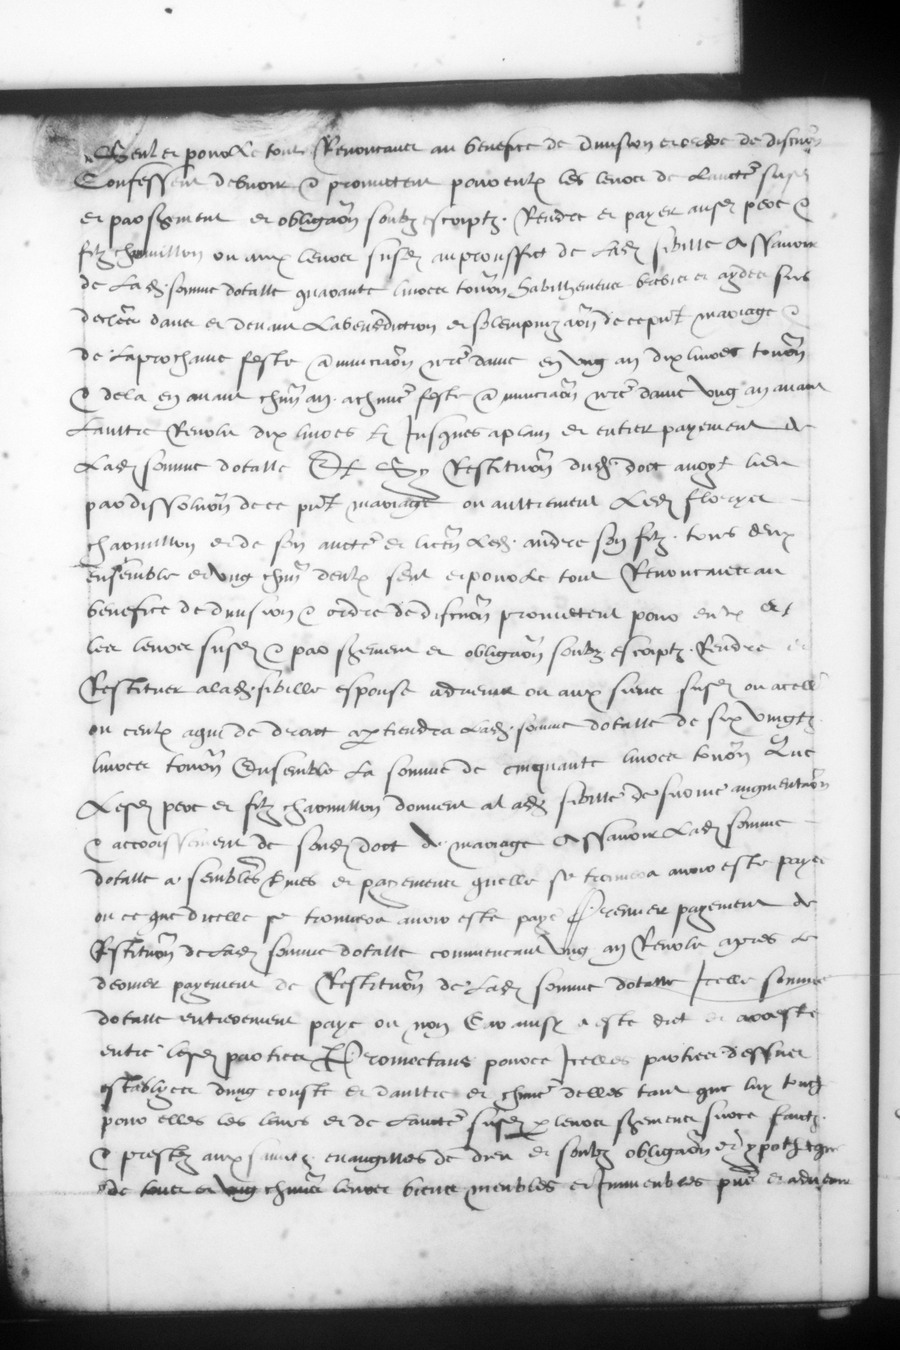 Seul et pour le tout Renonceant au benefice de division et ordre de discution
Confessent debvoir & promectent pour eulx les leurs de lauctorité susdite
et par serment et obligation soubz escriptz. Rendre et payer ausdits pere &
filz charmillon ou aux leurs susdits au prouffict de ladite sibille Assavoir
de ladite somme dotalle quarante livres tournois habillemens et
davant et devant la benediction et solempnization de ce present mariage &
de la prochaine feste annunciation nostre dame en ung an dix livres tournois
& de la en avant chacun an a chacune feste annunciation nostre dame ung an avant
laultre Revolu dix livres Jusques a plain et entier payement de
Ladite somme dotalle Et Sy Restitution dudit doct avoyt lieu
par dissolution de ce present mariage ou aultrement Ledit
charmillon et de son auctorité et licence Ledit andre son filz tous deux
ensemble et ung chacun deulx seul et pour le tout Renonceant au
benefice de division & ordre de discution promectent pour eulx et
les leurs susdits & par serement et obligation soubz escriptz Rendre et
Restituer a ladite sibille espouse advenir ou aux siens susdits ou a celle
ou ceulx a qui de droict apartiendra Ladite somme dotalle de six vingtz
livres tournois Ensemble La somme de cinquante livres tournois Que
Lesdits pere et filz charmillon donnent a ladite sibille de survie augmentation
& accroissement de sondit doct de mariage Assavoir Ladite somme
dotalle a semblables termes et payemens quelle se trouvera avoir esté payee
ou ce que dicelle se trouvera avoir esté payé Premier payement de
Restitution de Ladite somme dotalle commenceant ung an Revolu apres le
dernier payement de Restitution de Ladite somme dotalle Icelle somme
dotalle entierement paye ou non Car ainsy a esté dict et acordé
entre lesdites parties Promectans pource Icelles parties dessus
establyes dung cousté et daultre et chacune delles tant que luy touche
pour elles les leurs et de Lauctorité susdite par leurs seremens sur ce faictz
& prestez aux sainctz evangilles de dieu et soubz obligation et ypothecque
de tous et ung chacuns leurs biens meubles et Immeubles presens et advenir